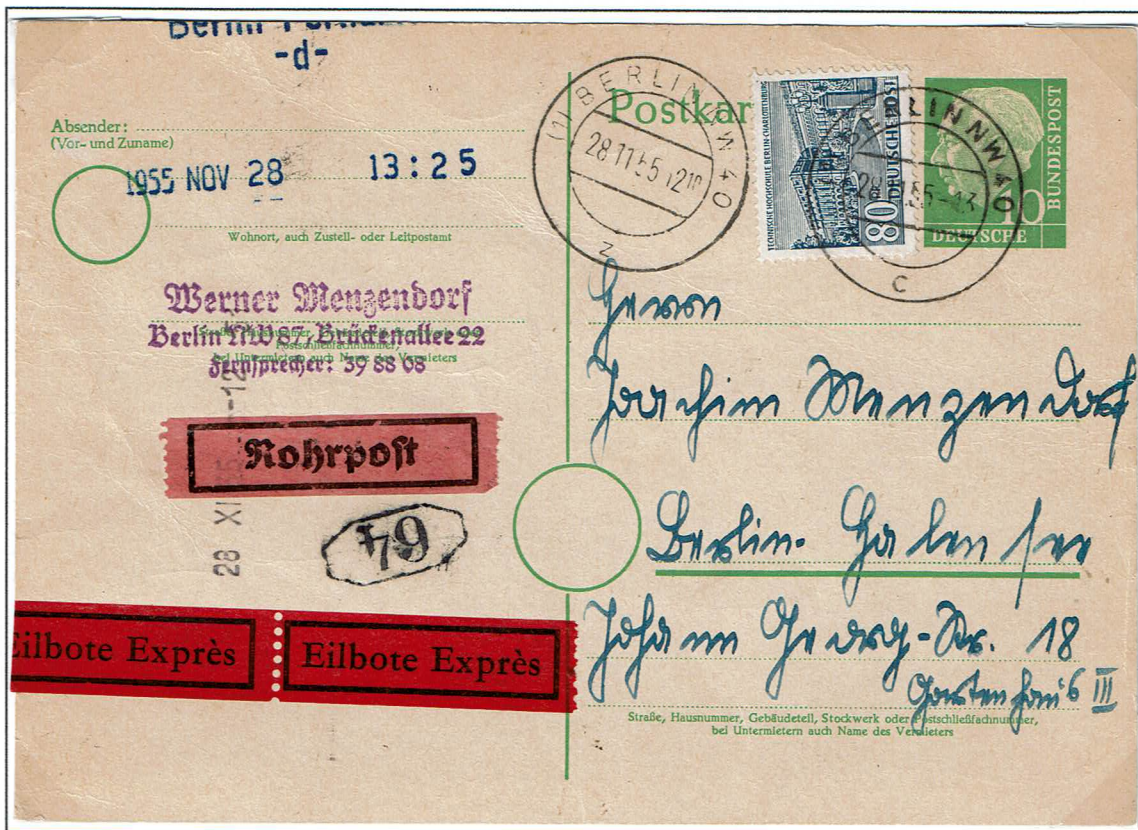 Berlin
-d-
Absender:
(Vor- und Zuname)
1955 NOV 28 13:25
Wohnort, auch Zustell- oder Leitpostamt
Werner Menzendorf
Berlin NW 87, Brückenallee 22
Postschließfachnummer,
bei Untermietern auch Name des Vermieters
Fernsprecher: 39 88 08
28 XI
Rohrpost
64
Eilbote Exprès
Eilbote Exprès
Postkar
(1) BERLIN NW 40
28.11.55
z
TECHNISCHE HOCHSCHULE BERLIN-CHARLOTTENBURG
80
DEUTSCHE POST
BERLIN NW 40
28.11.55-13
c
10
DEUTSCHE
BUNDESPOST
Herrn
Joachim Menzendorf
Berlin-Halensee
Johann Georg-Str. 18
Gartenhaus III
Straße, Hausnummer, Gebäudeteil, Stockwerk oder Postschließfachnummer,
bei Untermietern auch Name des Vermieters